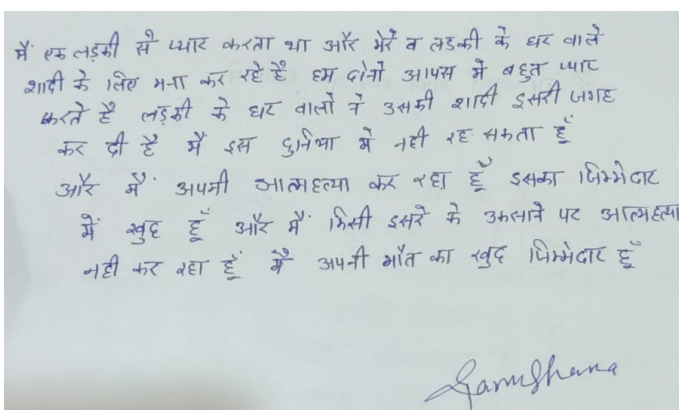 मैं एक लड़की से प्यार करता था और मेरे व लडकी के घर वाले
शादी के लिए मना कर रहे है हम दोनो आपस मे बहुत प्यार
करते है लड़की के घर वालो ने उसकी शादी दुसरी जगह
कर दी है मैं इस दुनिया मे नही रह सकता हूँ
और मैं अपनी आत्महत्या कर रहा हूँ इसका जिम्मेदार
में खुद हूँ और मैं किसी दुसरे के उकसाने पर आत्महत्या
नही कर रहा हूँ मै अपनी मौत का खुद जिम्मेदार हूँ